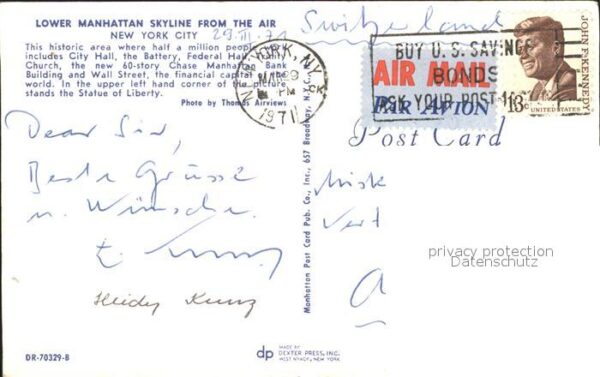 LOWER MANHATTAN SKYLINE FROM THE AIR
NEW YORK CITY
29.III.71
This historic area where half a million people work
includes City Hall, the Battery, Federal Hall, Trinity
Church, the new 60-story Chase Manhattan Bank
Building and Wall Street, the financial capital of the
world. In the upper left hand corner of the picture
stands the Statue of Liberty.
Photo by Thomas Airviews
Dear Sir,
Beste Grüsse
u. Wünsche
Heidy Kunz
DR-70329-B
Manhattan Post Card Pub. Co., Inc., 657 Broadway, N.Y.
dp
MADE BY
DEXTER PRESS, INC.
WEST NYACK, NEW YORK
Switzerland
NEW YORK, N.Y.
MAR 29
PM
1971
BUY U.S. SAVINGS
BONDS
ASK YOUR POST
AIR MAIL
PAR AVION
JOHN F. KENNEDY
13c
UNITED STATES
Post Card
privacy protection
Datenschutz